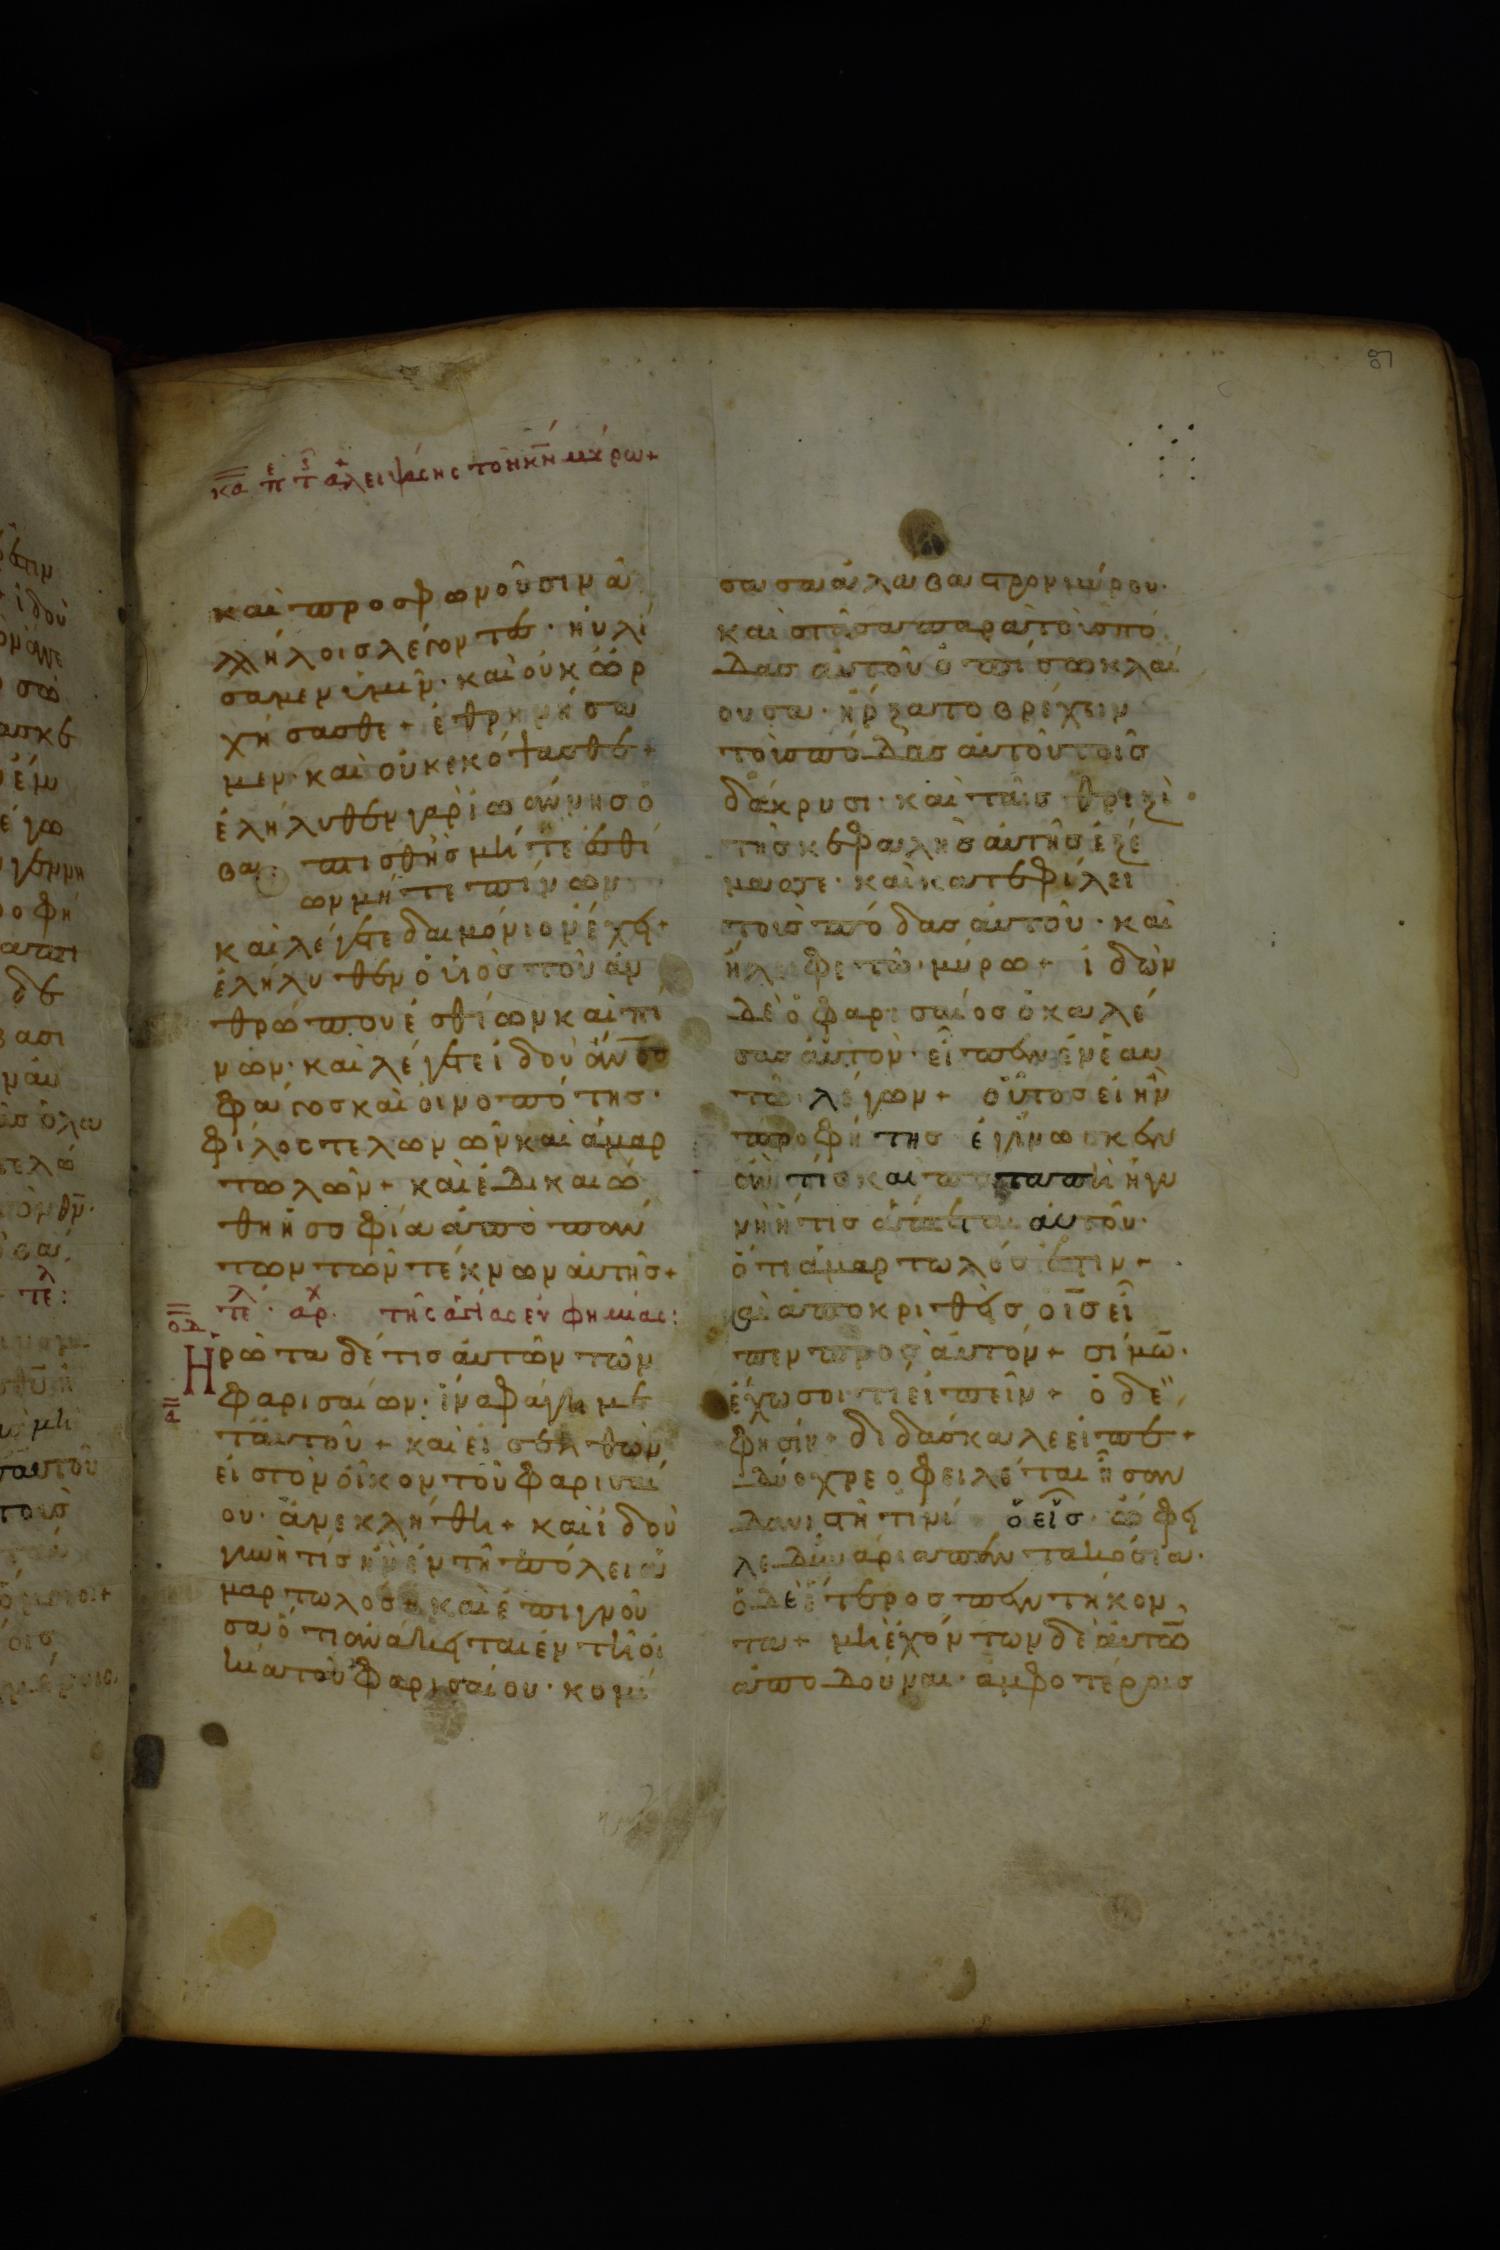 κα πε τ αλειψάσης τὸν κν μύρω+
καὶ προσφωνοῦσιν ἀ
λλήλοις λέγοντες· ηὐλί
σαμεν ὑμῖν· καὶ οὐκ ὠρ
χήσασθε + ἐθρηνήσα
μεν· καὶ οὐκ ἐκόψασθε +
ἐλήλυθεν γὰρ ἰωάννης ὁ
βαπτισθὴς μήτε ἐσθί
ων μήτε πίνων
καὶ λέγετε δαιμόνιον ἔχει +
ἐλήλυθεν ὁ υἱὸς τοῦ ἀν
θρώπου ἐσθίων καὶ πί
νων· καὶ λέγετε ἰδοὺ ἄνος
φάγος καὶ οἰνοπότης·
φίλος τελωνῶν καὶ ἁμαρ
τωλῶν + καὶ ἐδικαιώ
θη ἡ σοφία ἀπὸ παν
των τῶν τέκνων αὐτῆς +
τελ· αρχ· τῆς ἁγίας εὐφημίας:
οδ
Ἠρώτα δέ τις αὐτῶν τῶν
φαρισαίων· ἵνα φάγη με
τ' αὐτοῦ + καὶ εἰσελθὼν
εἰς τὸν οἶκον τοῦ φαρισαί
ου· ἀνεκλήθη + καὶ ἰδοὺ
γυνή τις ἦν ἐν τῇ πόλει ἁ
μαρτωλός + καὶ ἐπιγνοῦ
σα ὅτι ἀνάκειται ἐν τῇ οἰ
κία τοῦ φαρισαίου· κομί
σασα ἀλάβαστρον μύρου·
καὶ στᾶσα παρὰ τοὺς πό
δας αὐτοῦ ὀπίσω κλαί
ουσα· ἤρξατο βρέχειν
τοὺς πόδας αὐτοῦ τοῖς
δάκρυσι· καὶ ταῖς θριξὶ
τῆς κεφαλῆς αὐτῆς ἐξέ
μασσε· καὶ κατεφίλει
τοὺς πόδας αὐτοῦ· καὶ
ἤλειφε τῶ μύρω + ἰδὼν
δὲ ὁ φαρισαῖος ὁ καλέ
σας αὐτὸν· εἶπεν ἐν ἑαυ
τῶ λέγων + οὗτος εἰ ἦν
προφήτης ἐγίνωσκεν
ἂν τίς καὶ ποταπὴ ἡ γυ
νὴ ἥτις ἅπτεται αὐτοῦ·
ὅτι ἁμαρτωλός ἐστιν +
καὶ ἀποκριθεὶς ὁ ις εἶ
πεν πρὸς αὐτόν + σίμω̄·
ἔχω σοι τι εἰπεῖν + ὁ δὲ
φησίν + διδάσκαλε εἰπέ +
δύο χρεοφειλέται ἦσαν
δανιστῆ τινί ὁ εἷς ὤφει
λε δηνάρια πεντακόσια·
ὁ δὲ ἕτερος πεντήκον
τα + μὴ ἐχόντων δὲ αὐτῶ̄
ἀποδοῦναι· ἀμφοτέροις